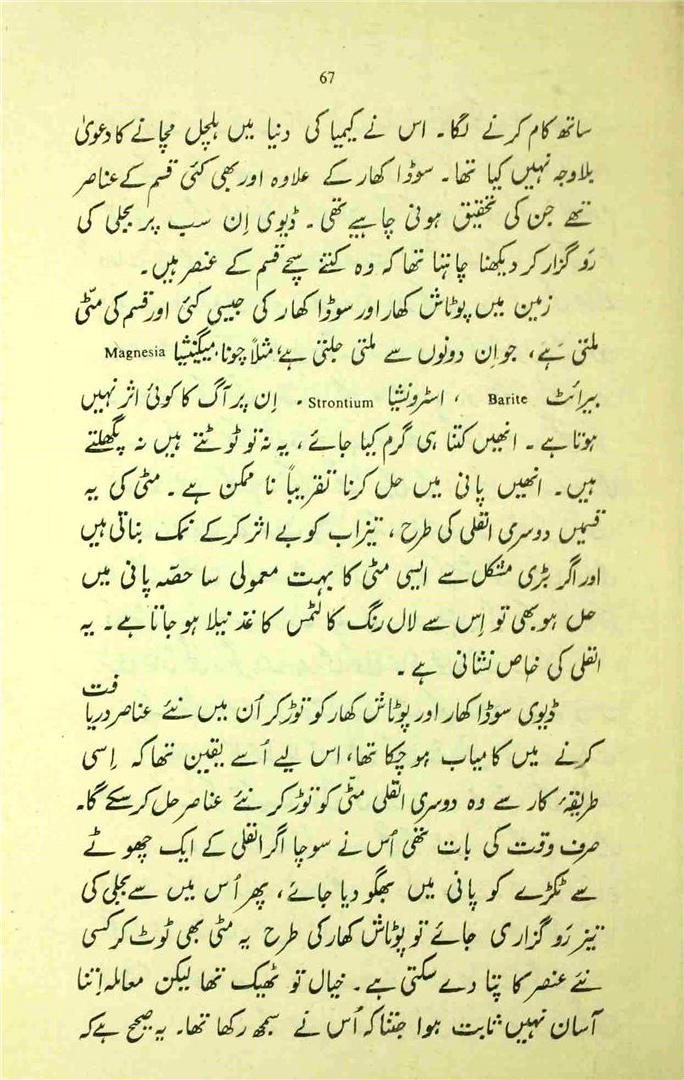 67
ساتھ کام کرنے لگا۔ اس نے کیمیا کی دنیا میں ہلچل مچانے کا دعویٰ
بلاوجہ نہیں کیا تھا۔ سوڈا کھار کے علاوہ اور بھی کئی قسم کے عناصر
تھے جن کی تحقیق ہونی چاہیے تھی۔ ڈیوی اِن سب پر بجلی کی
رَو گزار کر دیکھنا چاہتا تھا کہ وہ کتنے سچے قسم کے عنصر ہیں۔
زمین میں پوٹاش کھار اور سوڈا کھار کی جیسی کئی اور قسم کی مٹّی
ملتی ہے، جو اِن دونوں سے ملتی جلتی ہے، مثلاً چونا، میگنیشیا Magnesia
بیرائٹ Barite ، اسٹرونشیا Strontium ۔ اِن پر آگ کا کوئی اثر نہیں
ہوتا ہے۔ انھیں کتنا ہی گرم کیا جائے، یہ نہ تو ٹوٹتے ہیں نہ پگھلتے
ہیں۔ انھیں پانی میں حل کرنا تقریباً نا ممکن ہے۔ مٹی کی یہ
قسمیں دوسری القلی کی طرح، تیزاب کو بے اثر کرکے نمک بناتی ہیں
اور اگر بڑی مشکل سے ایسی مٹی کا بہت معمولی سا حصّہ پانی میں
حل ہو بھی تو اِس سے لال رنگ کا لٹمس کاغذ نیلا ہو جاتا ہے۔ یہ
القلی کی خاص نشانی ہے۔
ڈیوی سوڈا کھار اور پوٹاش کھار کو توڑ کر اُن میں نئے عناصر دریافت
کرنے میں کامیاب ہو چکا تھا، اس لیے اُسے یقین تھا کہ اِسی
طریقۂ کار سے وہ دوسری القلی مٹّی کو توڑ کر نئے عناصر حل کر سکے گا۔
صرف وقت کی بات تھی اُس نے سوچا اگر القلی کے ایک چھوٹے
سے ٹکڑے کو پانی میں بھگو دیا جائے، پھر اُس میں سے بجلی کی
تیز رَو گزاری جائے تو پوٹاش کھار کی طرح یہ مٹی بھی ٹوٹ کر کسی
نئے عنصر کا پتا دے سکتی ہے۔ خیال تو ٹھیک تھا لیکن معاملہ اِتنا
آسان نہیں ثابت ہوا جتنا کہ اُس نے سمجھ رکھا تھا۔ یہ صحیح ہے کہ